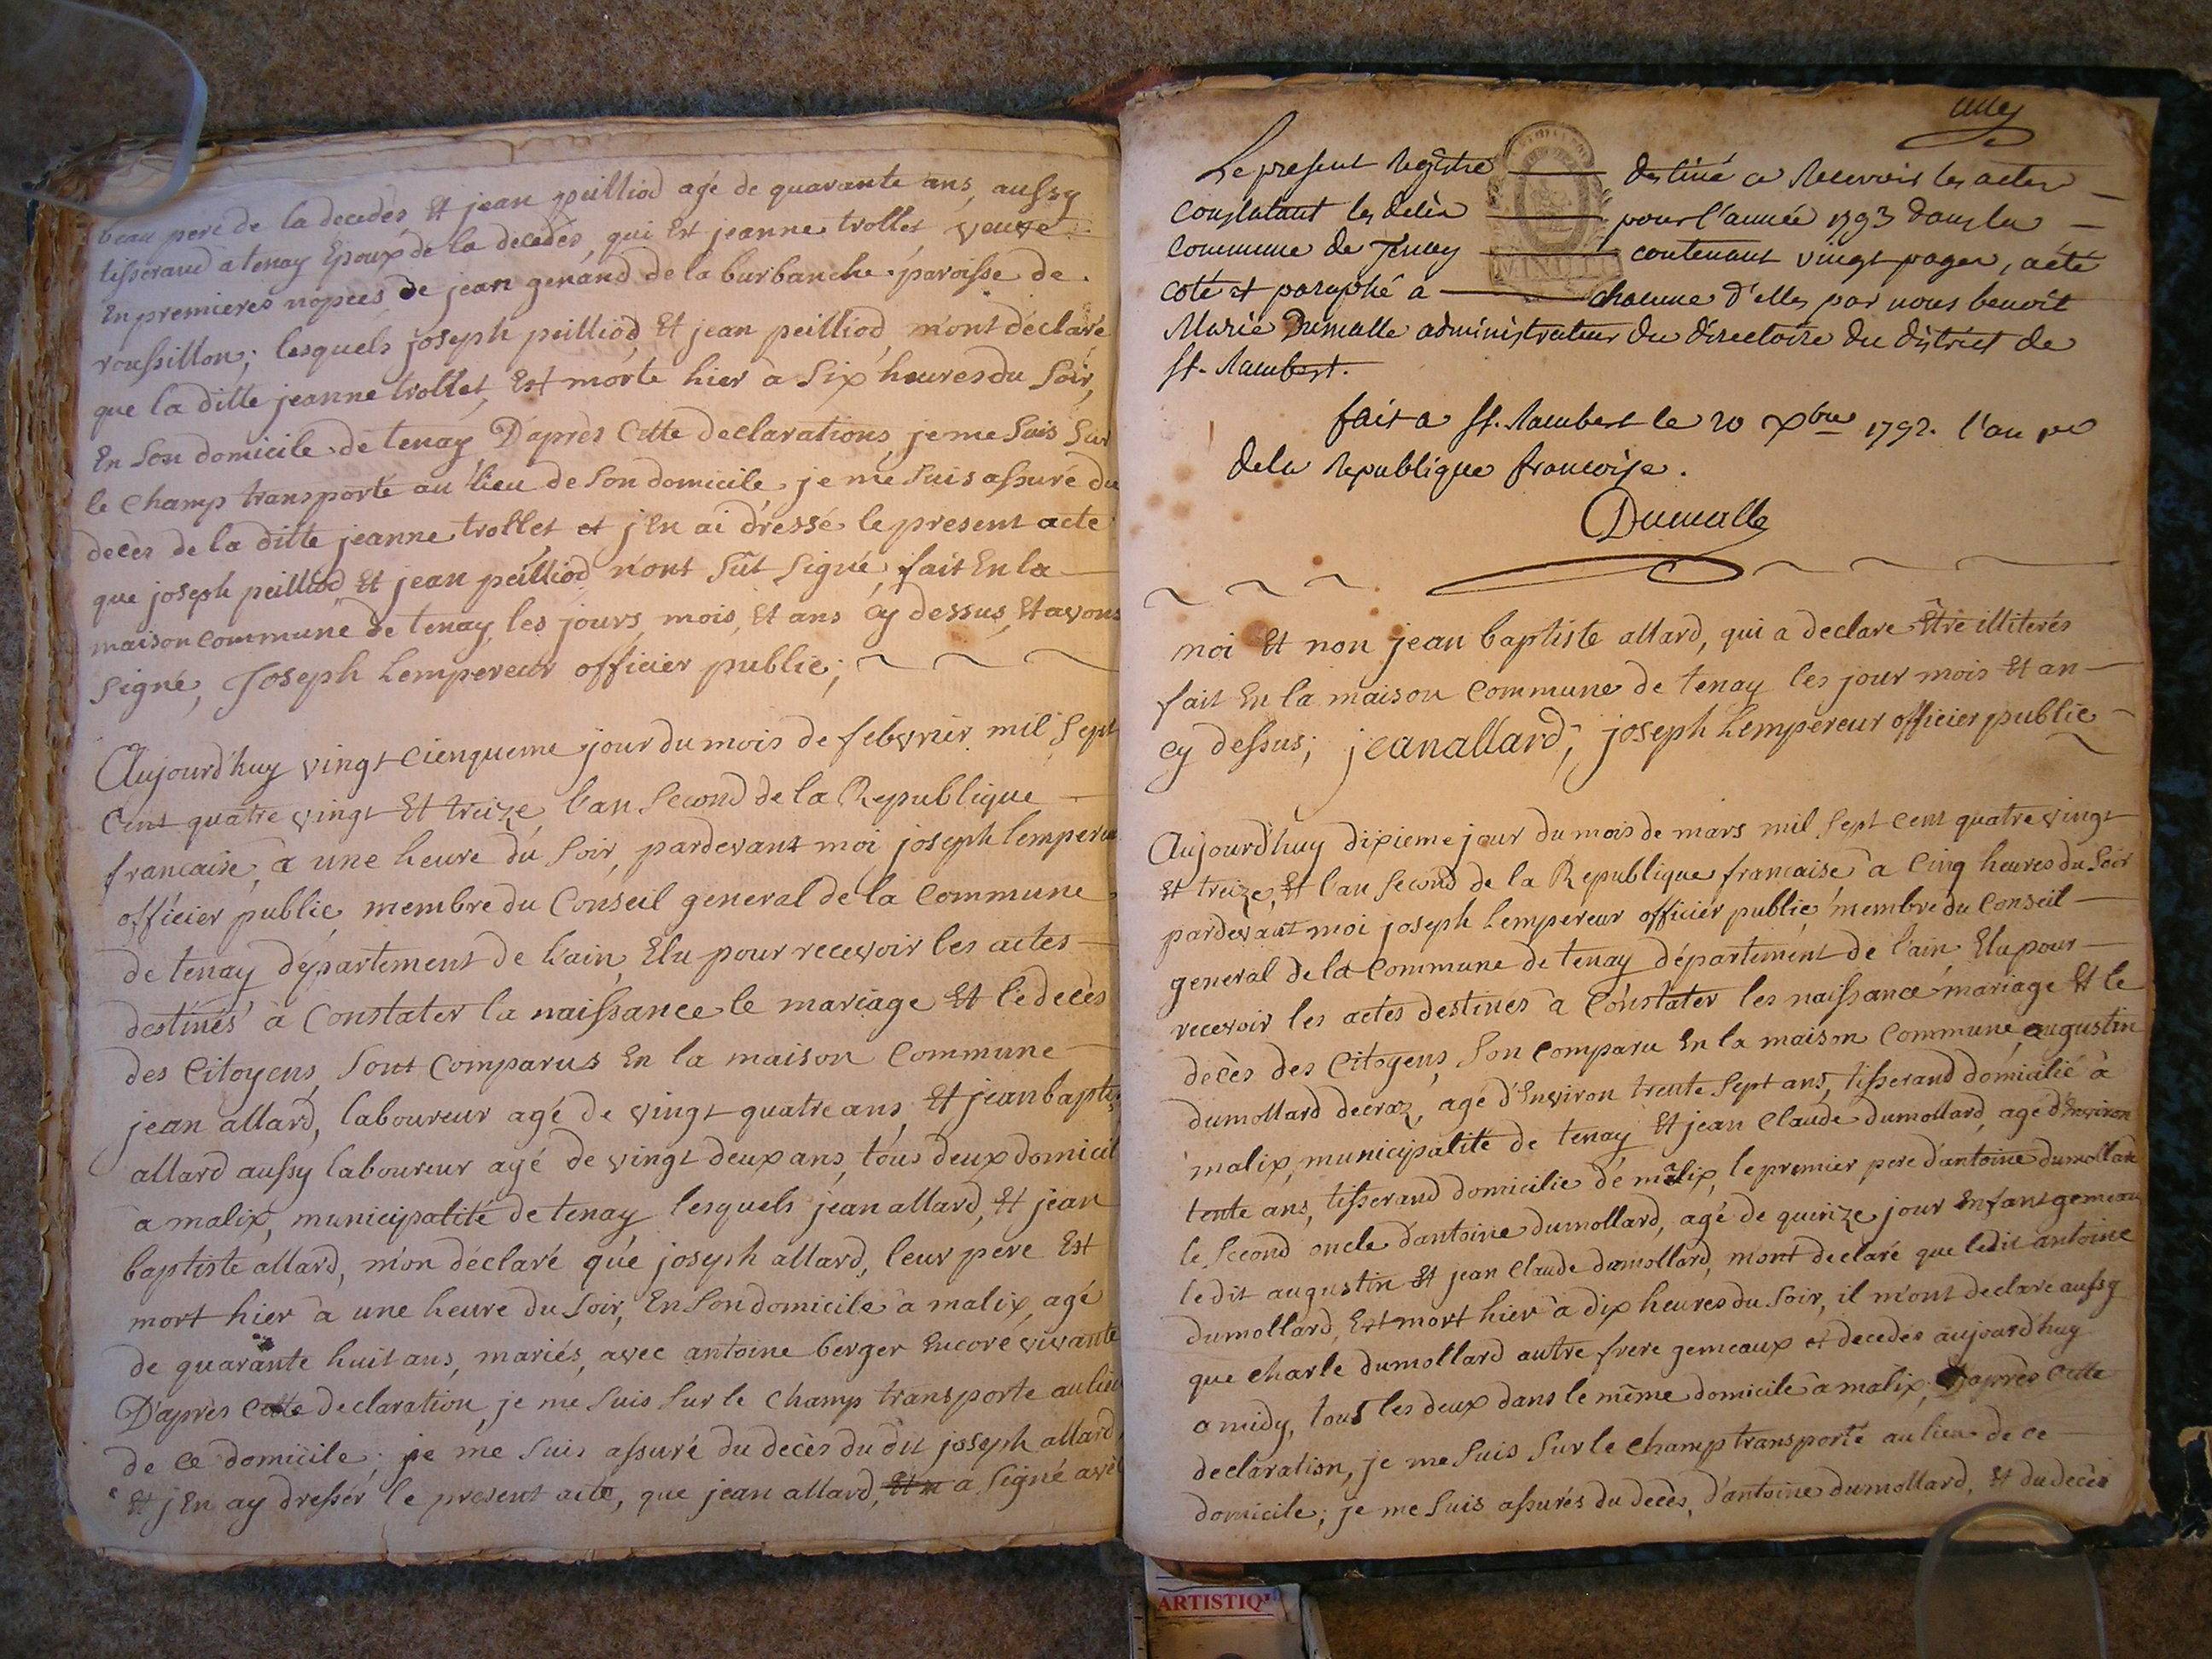 beau pere de la decedés Et jean peilliod agé de quarante ans, aussy
tisserand a tenay Epoux de la decedés, qui Est jeanne trollet veuve
En premieres nopces de jean genand de la burbanche paroisse de
roussillon; lesquels joseph peilliod, Et jean peilliod, m'ont déclaré
que la ditte jeanne trollet, Est morte hier à Six heures du Soir,
En Son domicile de tenay, D'après Cette declarations, je me Suis Sur
le Champ transporté au lieu de Son domicile, je me Suis assuré du
decès de la ditte jeanne trollet et j'En ai dressé le present acte
que joseph peilliod Et jean peilliod n'ont Sût Signé, fait En la
maison commune de tenay, les jours, mois, Et ans Cy dessus, Et avons
Signé, Joseph Lempereur officier public;
Aujourd'huy vingt-cienqueme jour du mois de febvrier mil Sept
Cent quatre vingt Et treize l'an Second de la Republique
francaise, à une heure du Soir, pardevant moi joseph lempereu
officier public, membre du Conseil general de la Commune
de tenay département de L'ain, Elu pour recevoir les actes
destinés à Constater la naissance le mariage Et le decès
des Citoyens, Sont Comparus En la maison Commune
jean allard, laboureur agé de vingt quatre ans, Et jean baptis
allard aussy laboureur agé de vingt deux ans, tous deux domicil
a malix, municipalité de tenay lesquels jean allard, Et jean
baptiste allard, m'on déclaré que joseph allard, leur pere Est
mort hier à une heure du Soir, En Son domicile à malix, agé
de quarante huit ans, mariés, avec antoine berger Encore vivante
D'après Cette declaration, je me Suis Sur le Champ transporte au lieu
de Ce domicile; je me Suis assuré du decès du dit joseph allard
Et j'En ay dresser le present acte, que jean allard, Et n a Signé avec
Le present Registre destiné a Recevoir les actes
Constatant les décès pour l'année 1793 dans la
Commune de Tenay contenant vingt pages, a été
coté et paraphé a chacune d'elles par nous benoit
Marie Dumalle administrateur du directoire du district de
St. Rambert.
fait a St. Rambert le 20 Xbre 1792. l'an per
de la Republique francoise.
Dumalle
moi Et non jean baptiste allard, qui a declare Être illiterés
fait En la maison Commune de tenay les jour mois Et an
Cy dessus; jean allard; joseph Lempereur officier public
Aujourd'huy dixieme jour du mois de mars mil Sept Cent quatre vingt
Et treize, Et l'an Second de la Republique francaise à Cinq heures du Soir
pardevant moi joseph Lempereur officier public, membre du Conseil
general de la Commune de tenay département de l'ain Elu pour
recevoir les actes destinés à Constater les naissance mariage Et le
decès des Citoyens, Son Comparu En la maison Commune, augustin
dumollard decraz, agé d'Environ trente Sept ans, tisserand domicilié à
malix, municipalité de tenay Et jean Claude dumollard, agé d'Environ
tente ans, tisserand domicilie de malix, le premier pere d'antoine dumollard
le Second oncle d'antoine dumollard, agé de quinze jour Enfant gemeau
le dit augustin Et jean Claude dumollard, m'ont declaré que ledit antoine
dumollard, Est mort hier à dix heures du Soir, il m'ont declare aussy
que Charle dumollard autre frere gemeaux et decedés aujourd'huy
a midy, tous les deux dans le même domicile a malix; D'après Cette
declaration, je me Suis Sur le Champ transporté au lieu de Ce
domicile; je me Suis assurés du decès, d'antoine dumollard, Et du decès
ARTISTIQ